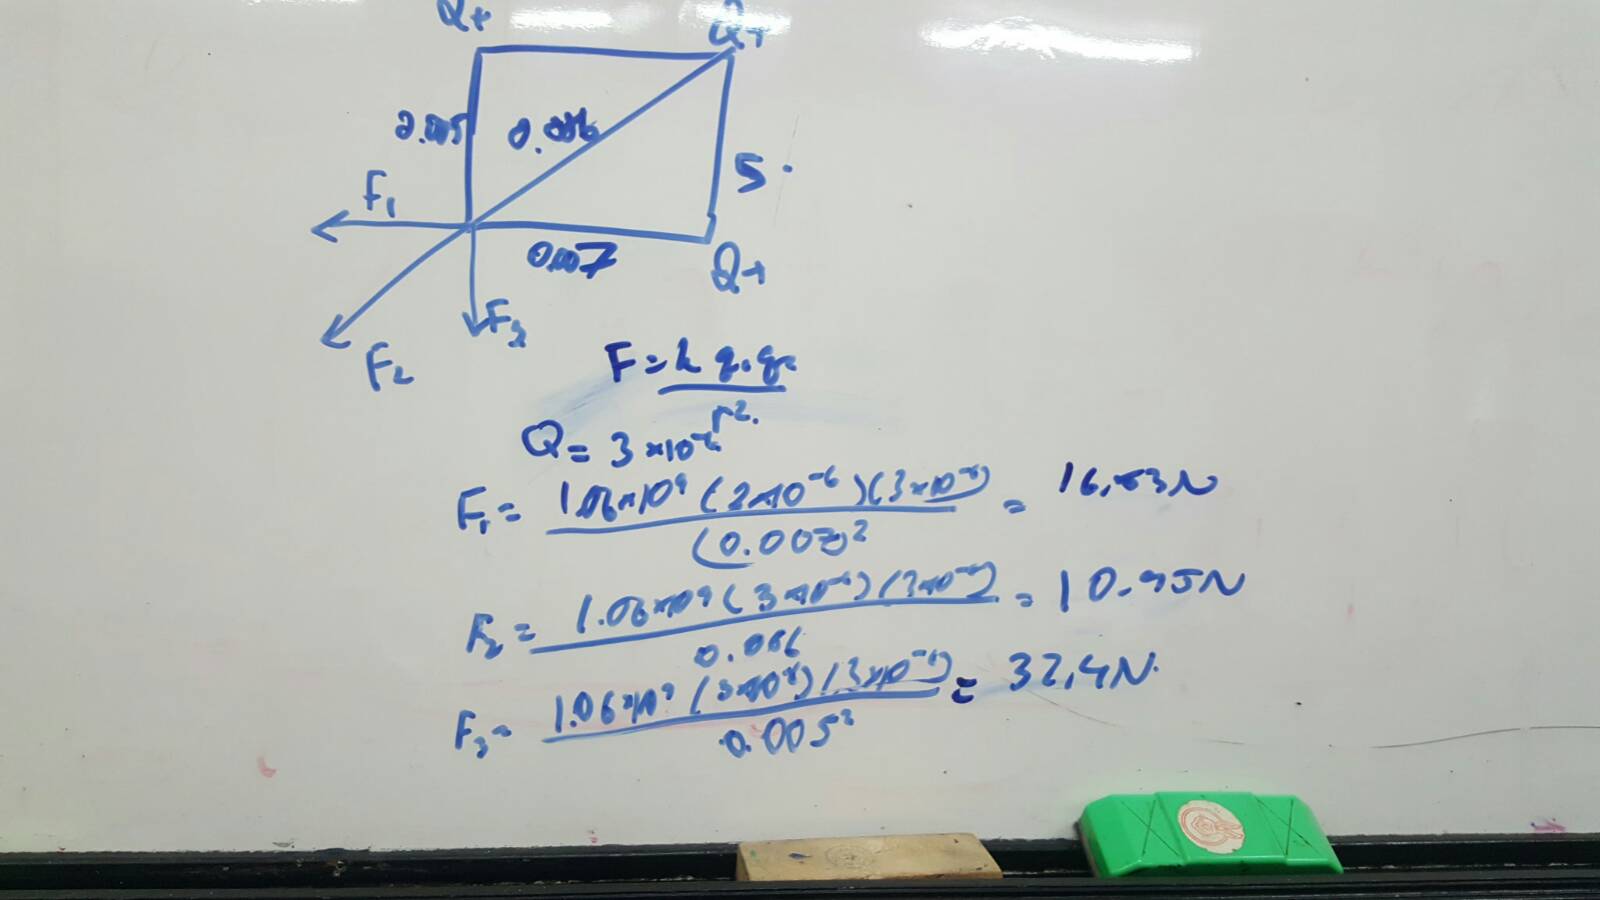 Q+ Q+
0.005 0.086 5
F₁
0.007 Q+
F₃
F₂
F = k q₁q₂
r²
Q = 3×10⁻⁶
F₁ = 1.06×10⁹ (3×10⁻⁶)(3×10⁻⁶) =
(0.007)²
F₂ = 1.06×10⁹ (3×10⁻⁶)(3×10⁻⁶) = 10.95N
F₃ = 1.06×10⁹ (3×10⁻⁶)(3×10⁻⁶) = 32,4N.
0.005²